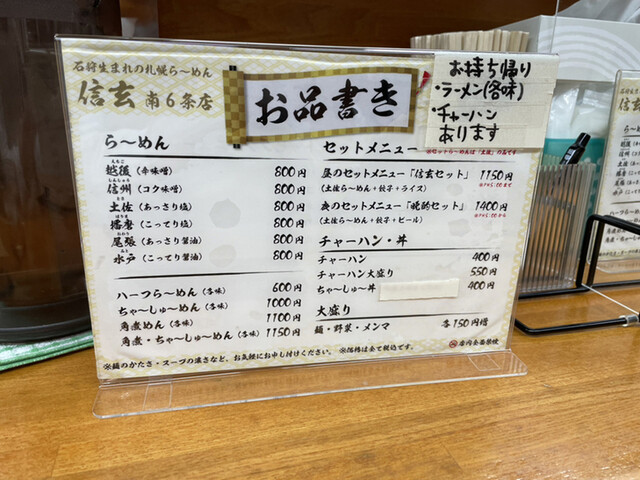 石狩生まれの札幌ら〜めん
信玄 南6条店
お品書き
お持ち帰り
・ラーメン(各味)
・チャーハン
あります
ら〜めん
越後 (辛味噌) 800円
信州 (コク味噌) 800円
土佐 (あっさり塩) 800円
播磨 (こってり塩) 800円
尾張 (あっさり醤油) 800円
水戸 (こってり醤油) 800円
ハーフら〜めん (各味) 600円
ちゃ〜しゅ〜めん (各味) 1000円
角煮めん (各味) 1100円
角煮・ちゃ〜しゅ〜めん (各味) 1150円
セットメニュー ※セットら〜めんは「土佐」の品です
昼のセットメニュー「信玄セット」 1150円
(土佐ら〜めん+餃子+ライス)
夜のセットメニュー「晩酌セット」 1400円
(土佐ら〜めん+餃子+ビール)
チャーハン・丼
チャーハン 400円
チャーハン大盛り 550円
ちゃ〜しゅ〜丼 400円
大盛り
麺・野菜・メンマ 各150円増
※麺のかたさ・スープの濃さなど、お気軽にお申し付けください。 ※価格は全て税込です。
店内全面禁煙
信玄
ら〜めん